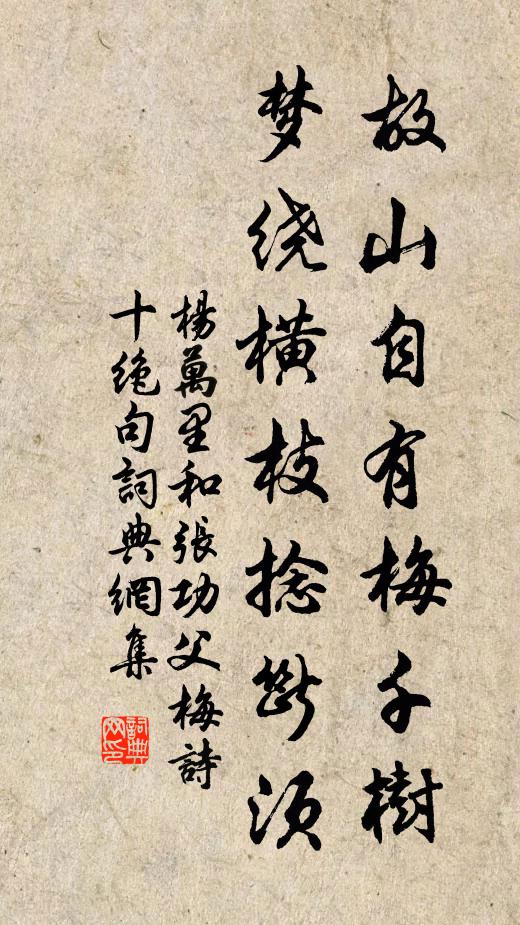 故山自有梅千樹
梦绕横枝捻断须
楊萬里和張功父梅詩
十绝句詞典網集
詞典
网印